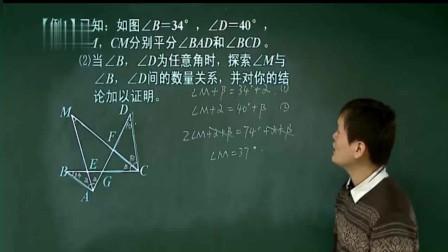 【例1】已知：如图∠B=34°，∠D=40°，
AM，CM分别平分∠BAD和∠BCD。
(2)当∠B，∠D为任意角时，探索∠M与
∠B，∠D间的数量关系，并对你的结
论加以证明。
∠M+β=34°+α ①
∠M+α=40°+β ②
2∠M+α+β=74°+α+β
∠M=37°
M
D
F
B
E
G
C
A